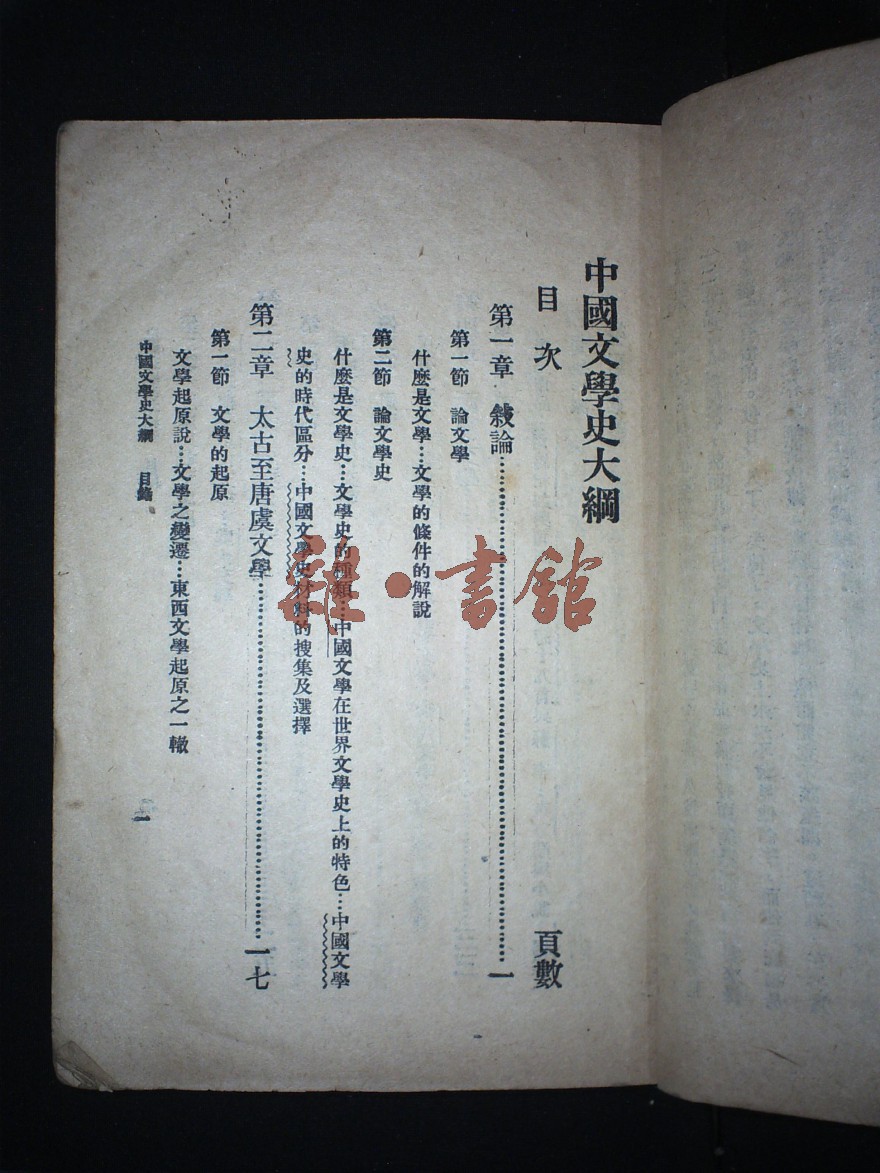 中國文學史大綱
目次　頁數
第一章　敍論……………………一
第一節　論文學
什麼是文學…文學的條件的解說
第二節　論文學史
什麼是文學史…文學史的種類…中國文學在世界文學史上的特色…中國文學
史的時代區分…中國文學史材料的搜集及選擇
第二章　太古至唐虞文學……………………一七
第一節　文學的起原
文學起原說…文學之變遷…東西文學起原之一轍
中國文學史大綱　目錄　一
雜·書館